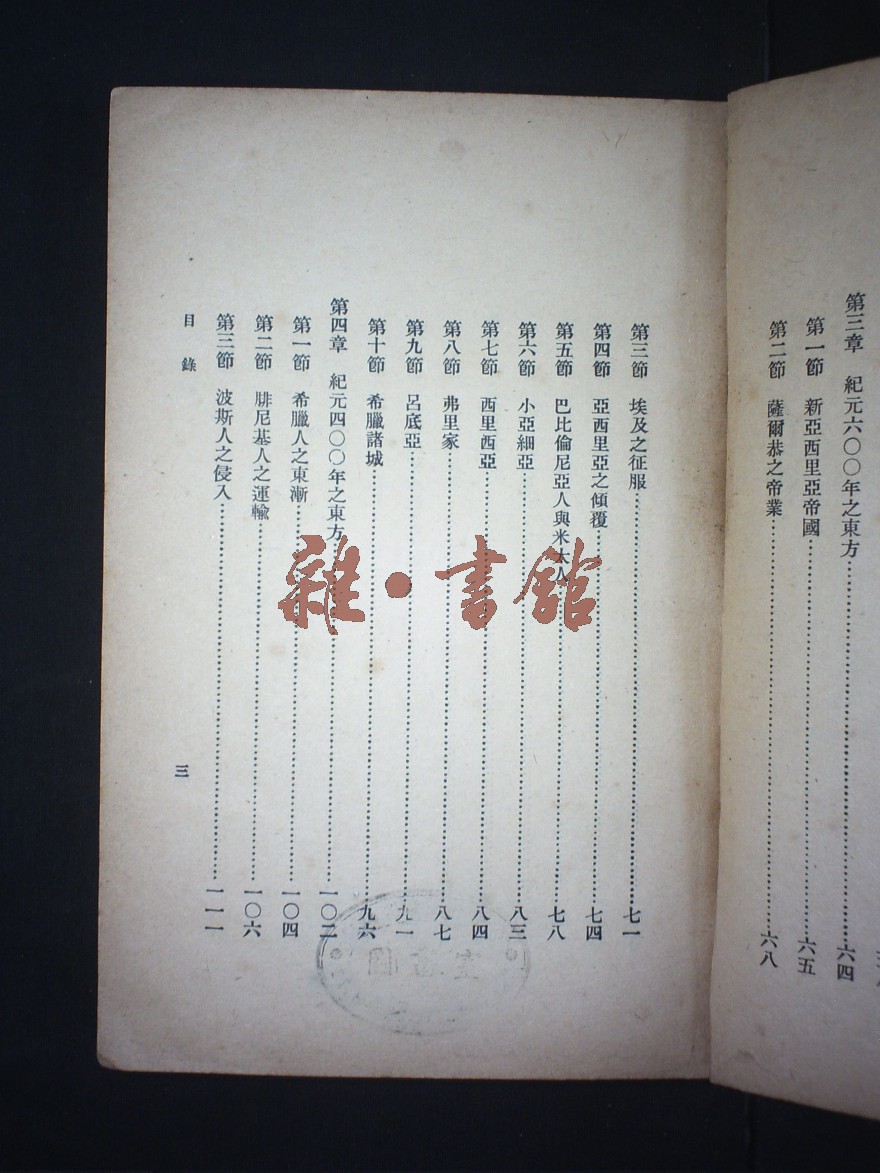 第三章　紀元六〇〇年之東方……六四
第一節　新亞西里亞帝國……六五
第二節　薩爾恭之帝業……六八
第三節　埃及之征服……七一
第四節　亞西里亞之傾覆……七四
第五節　巴比倫尼亞人與米太人……七八
第六節　小亞細亞……八三
第七節　西里西亞……八四
第八節　弗里家……八七
第九節　呂底亞……九一
第十節　希臘諸城……九六
第四章　紀元四〇〇年之東方……一〇二
第一節　希臘人之東漸……一〇四
第二節　腓尼基人之運輸……一〇六
第三節　波斯人之侵入……一一一
目錄
三
雜·書館